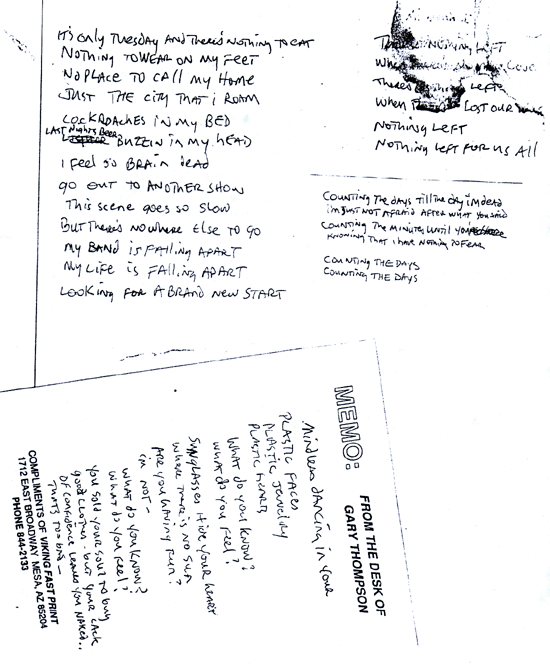 It's only Tuesday and there's nothing to eat
Nothing to wear on my feet
No place to call my home
Just the city that i roam
Cockroaches in my bed
Last nights beer buzzin in my head
i feel so brain dead
go out to another show
This scene goes so slow
But there's nowhere else to go
my band is falling apart
my life is falling apart
Looking for a brand new start
nothing left
When
Love
There's left
When lost our
Nothing left
Nothing left for us all
Counting the days till the day im dead
i'm just not afraid after what you said
Counting the minutes until
knowing that i have nothing to fear
Counting the days
Counting the days
MEMO:
FROM THE DESK OF
GARY THOMPSON
mindless dancing in your
Plastic faces
Plastic jewelry
Plastic hearts
What do you know?
What do you feel?
Sunglasses hide your
where there is no sun
Are you having fun?
i'm not -
what do you know?
what do you feel?
You sold your soul to buy
good clothes - but your lack
of confidence leaves you naked..
Thats too bad -
COMPLIMENTS OF VIKING FAST PRINT
1712 EAST BROADWAY MESA, AZ 85204
PHONE 844-2133